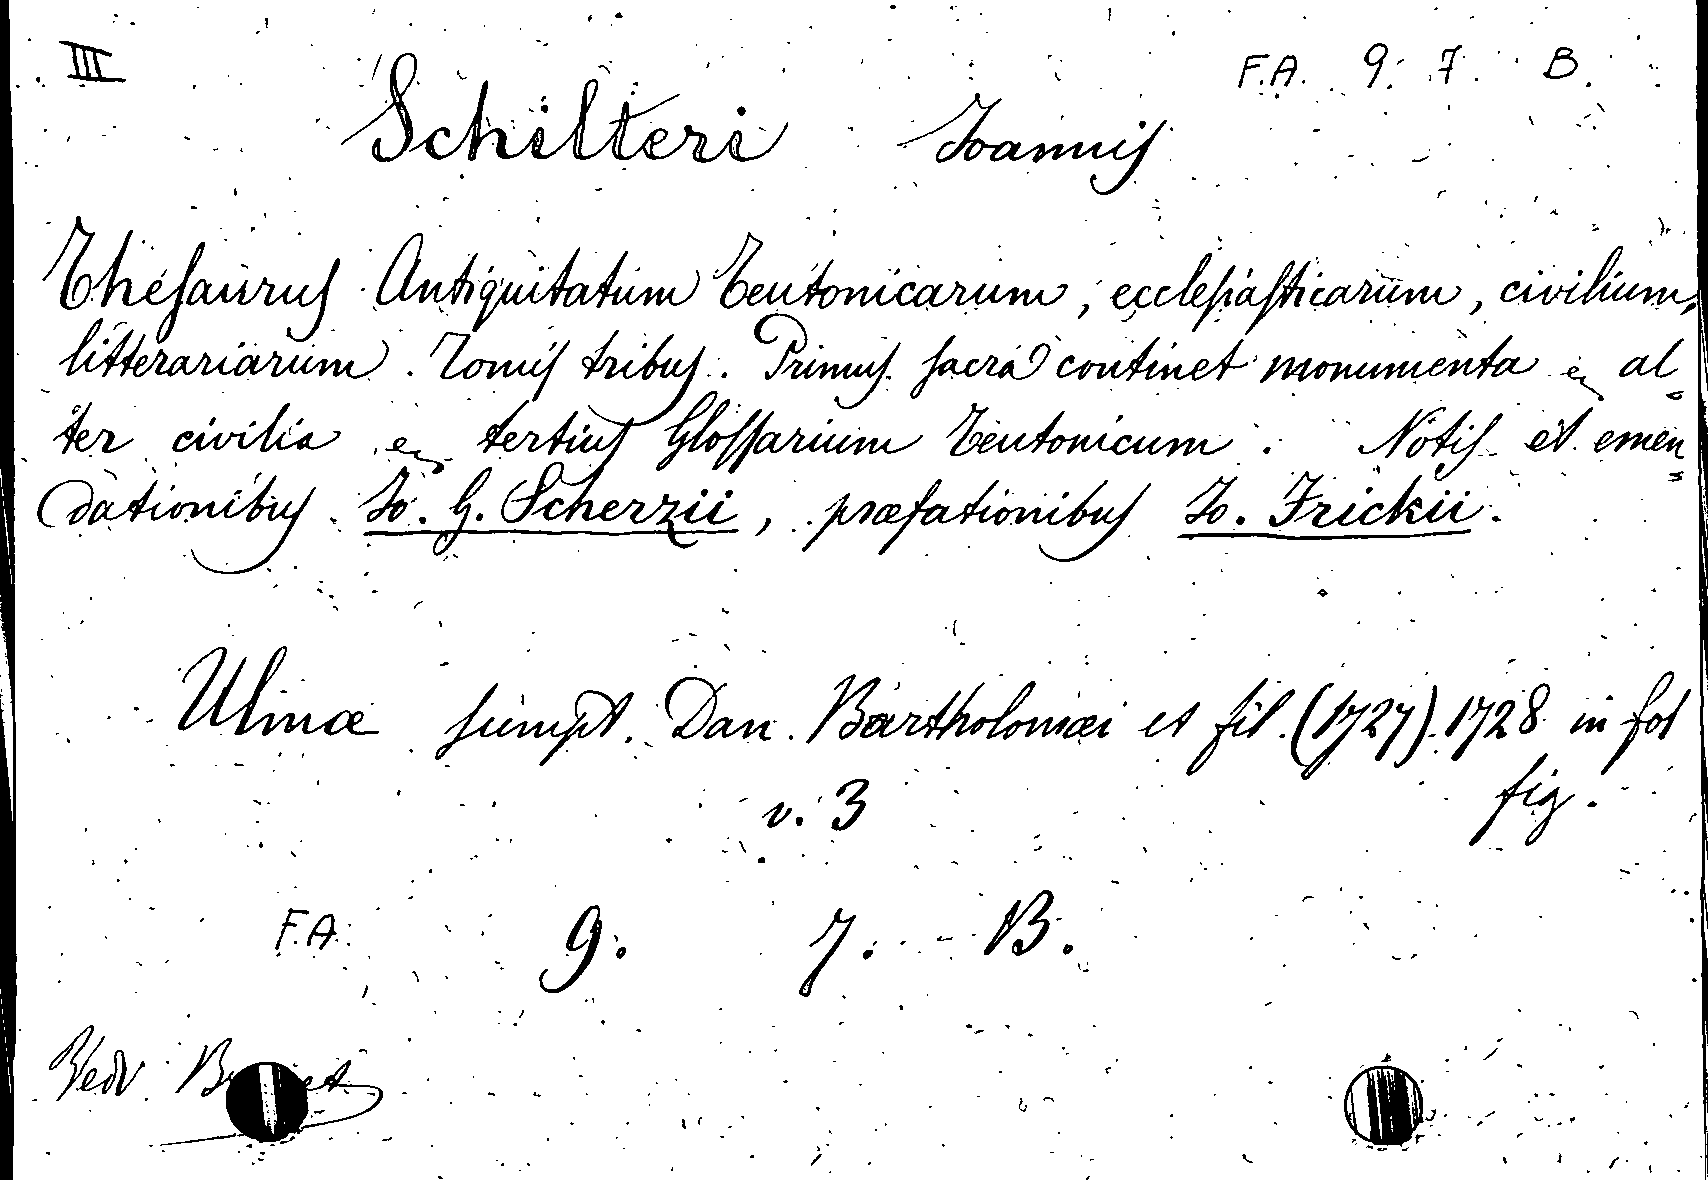 III
F.A. 9. 7. B.
Schilteri Joannis
Thesaurus Antiquitatum Teutonicarum, ecclesiasticarum, civilium,
litterariarum. Tomis tribus. Primus sacra continet monumenta, al-
ter civilia, tertius Glossarium Teutonicum. Notis et emen-
dationibus Jo. G. Scherzii, præfationibus Jo. Frickii.
Ulmæ sumpt. Dan. Bartholomæi et fil. (1727). 1728 in fol
fig.
v. 3
F.A. 9. 7. B.
Vedr